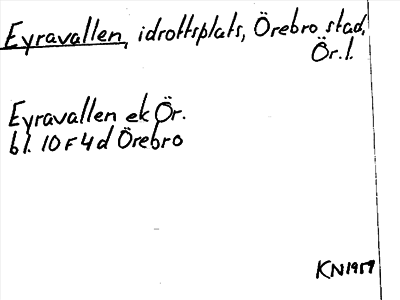 Eyravallen, idrottsplats, Örebro stad,
Ör. l.
Eyravallen ek Ör.
bl. 10 F 4 d Örebro
KN 1959